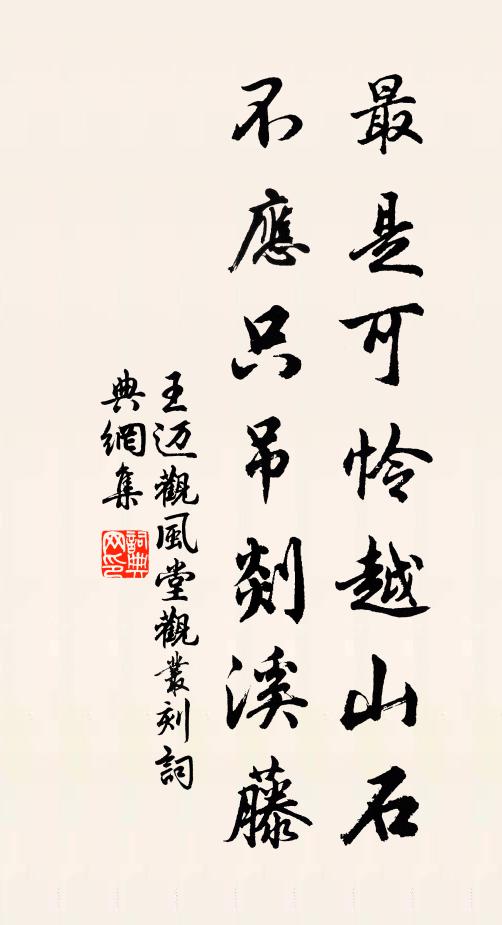 最是可怜越山石
不應只吊剡溪藤
王迈觀風堂觀叢刻詞
典網集
詞典
网印